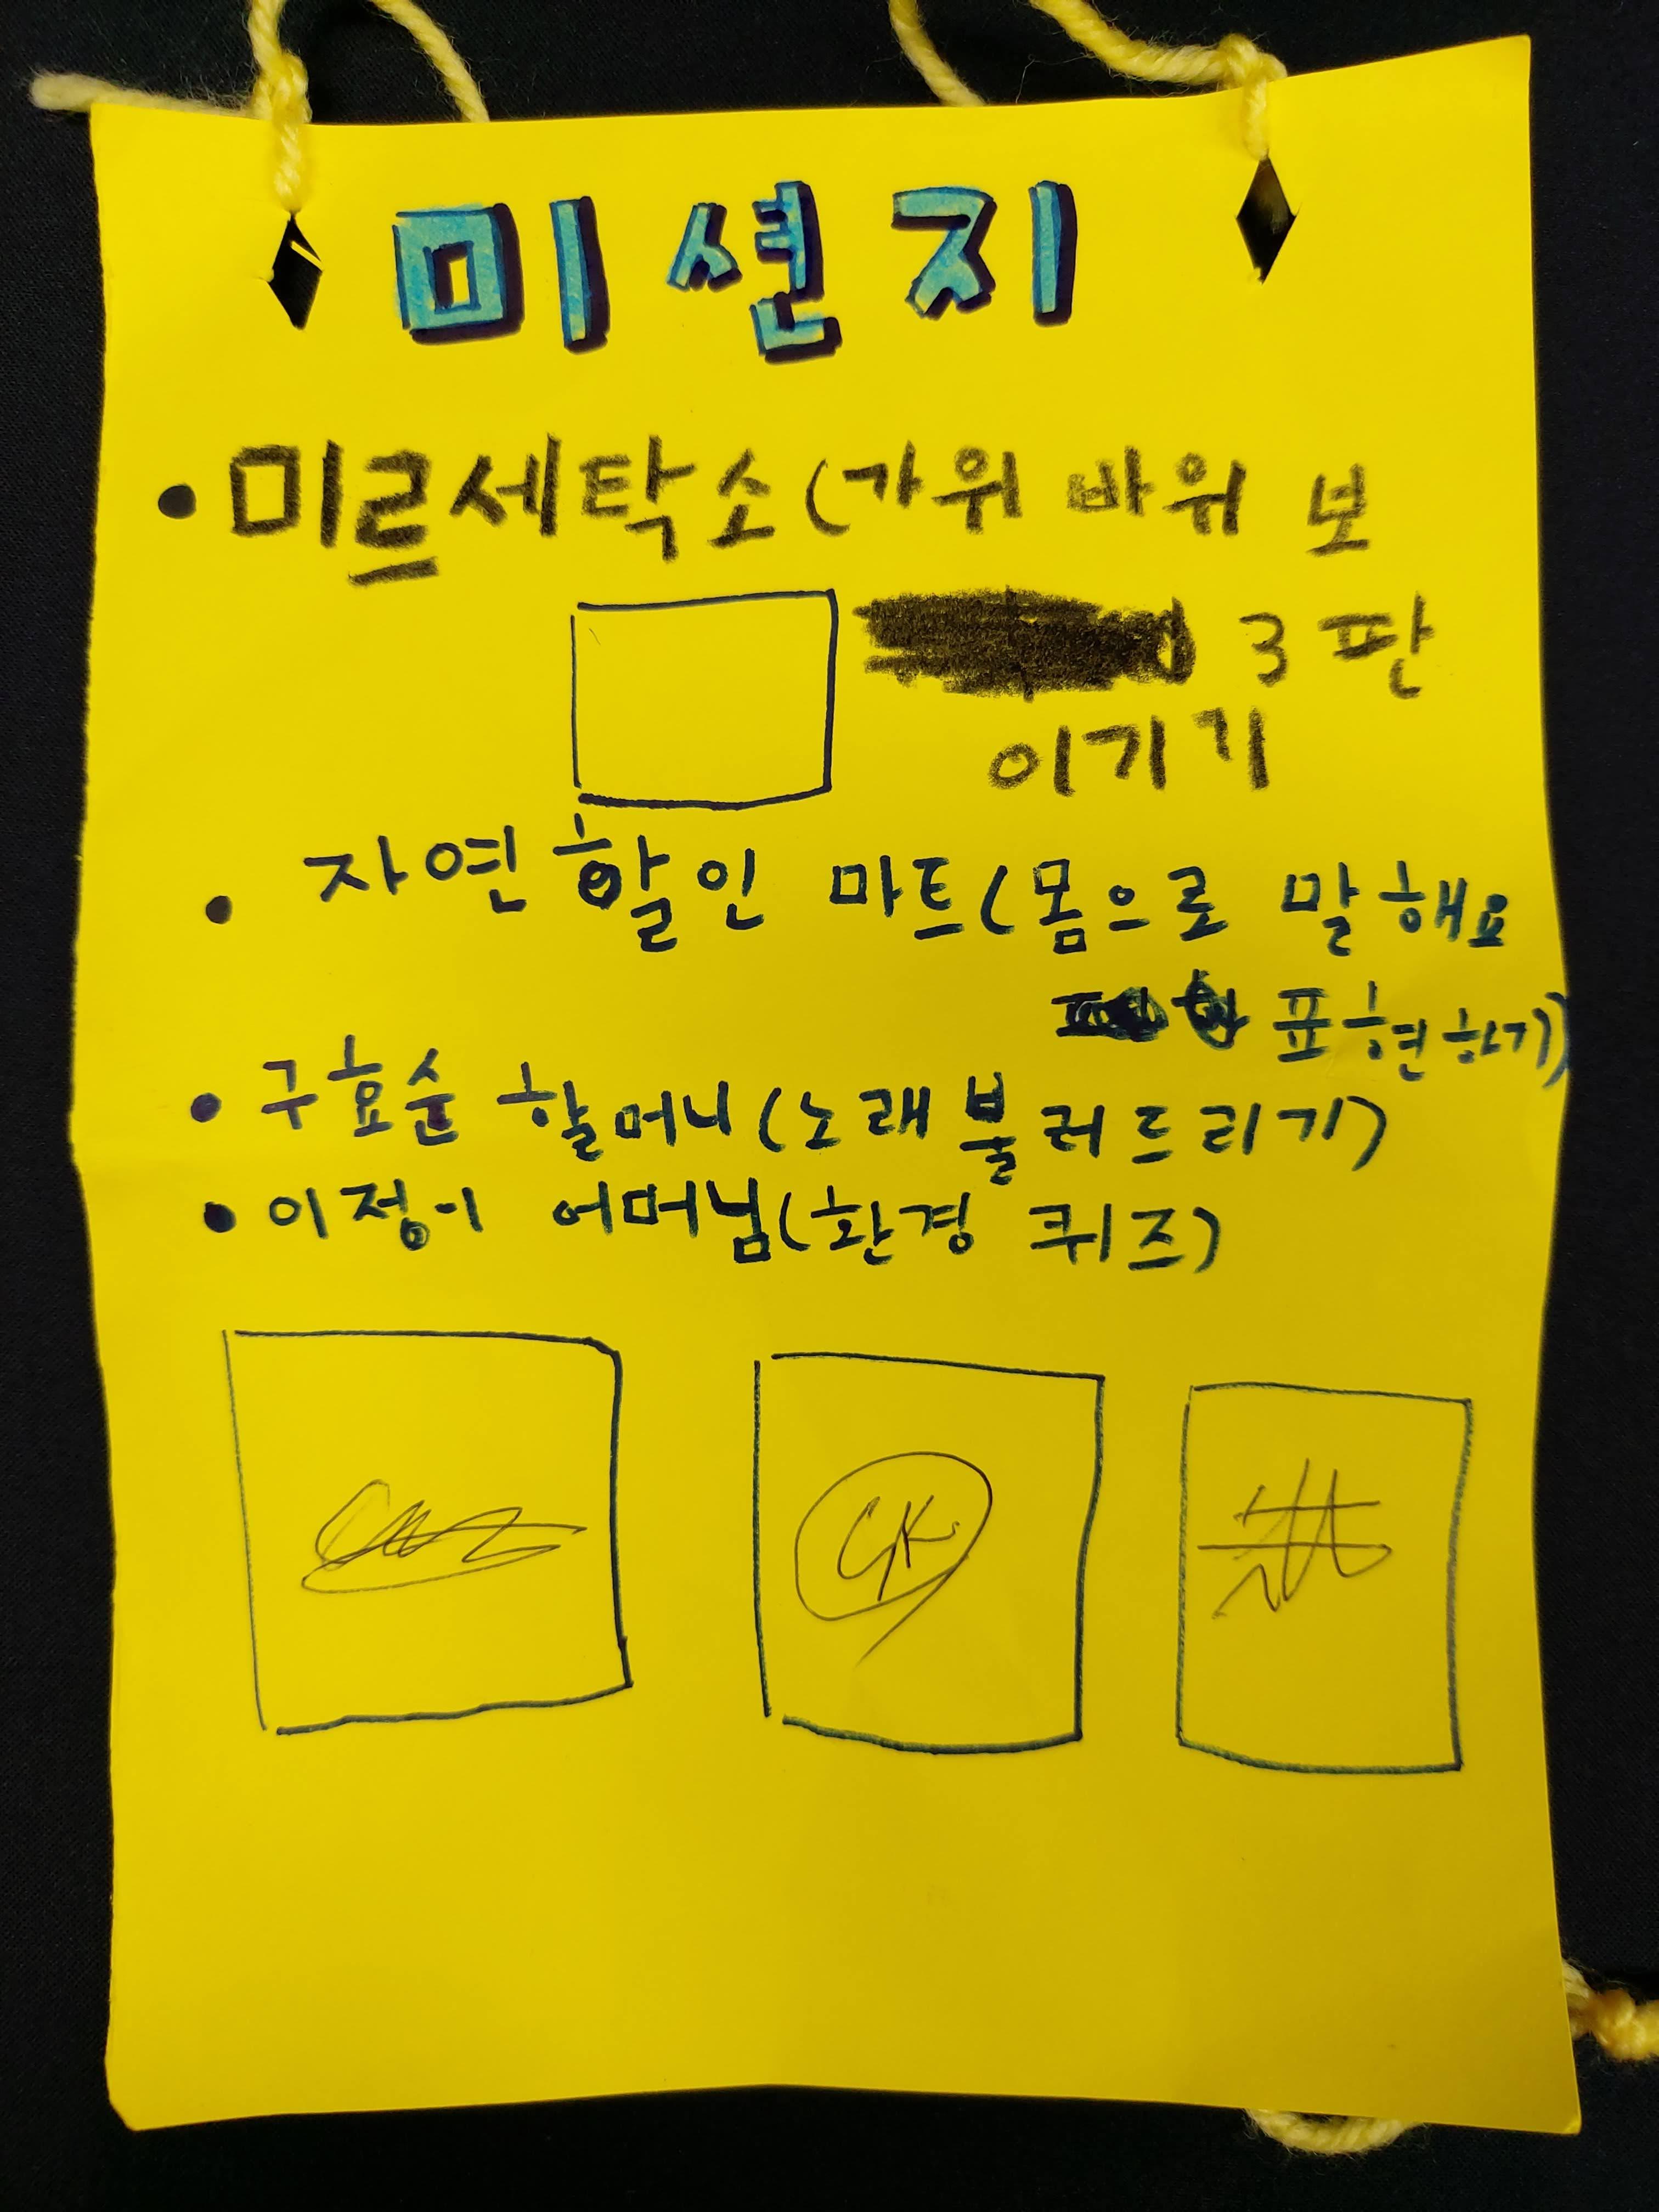 미션지
• 미르세탁소(가위 바위 보
3판
이기기
• 자연할인 마트(몸으로 말해요
표현하기)
• 구효순 할머니(노래불러드리기)
• 이정이 어머님(환경 퀴즈)